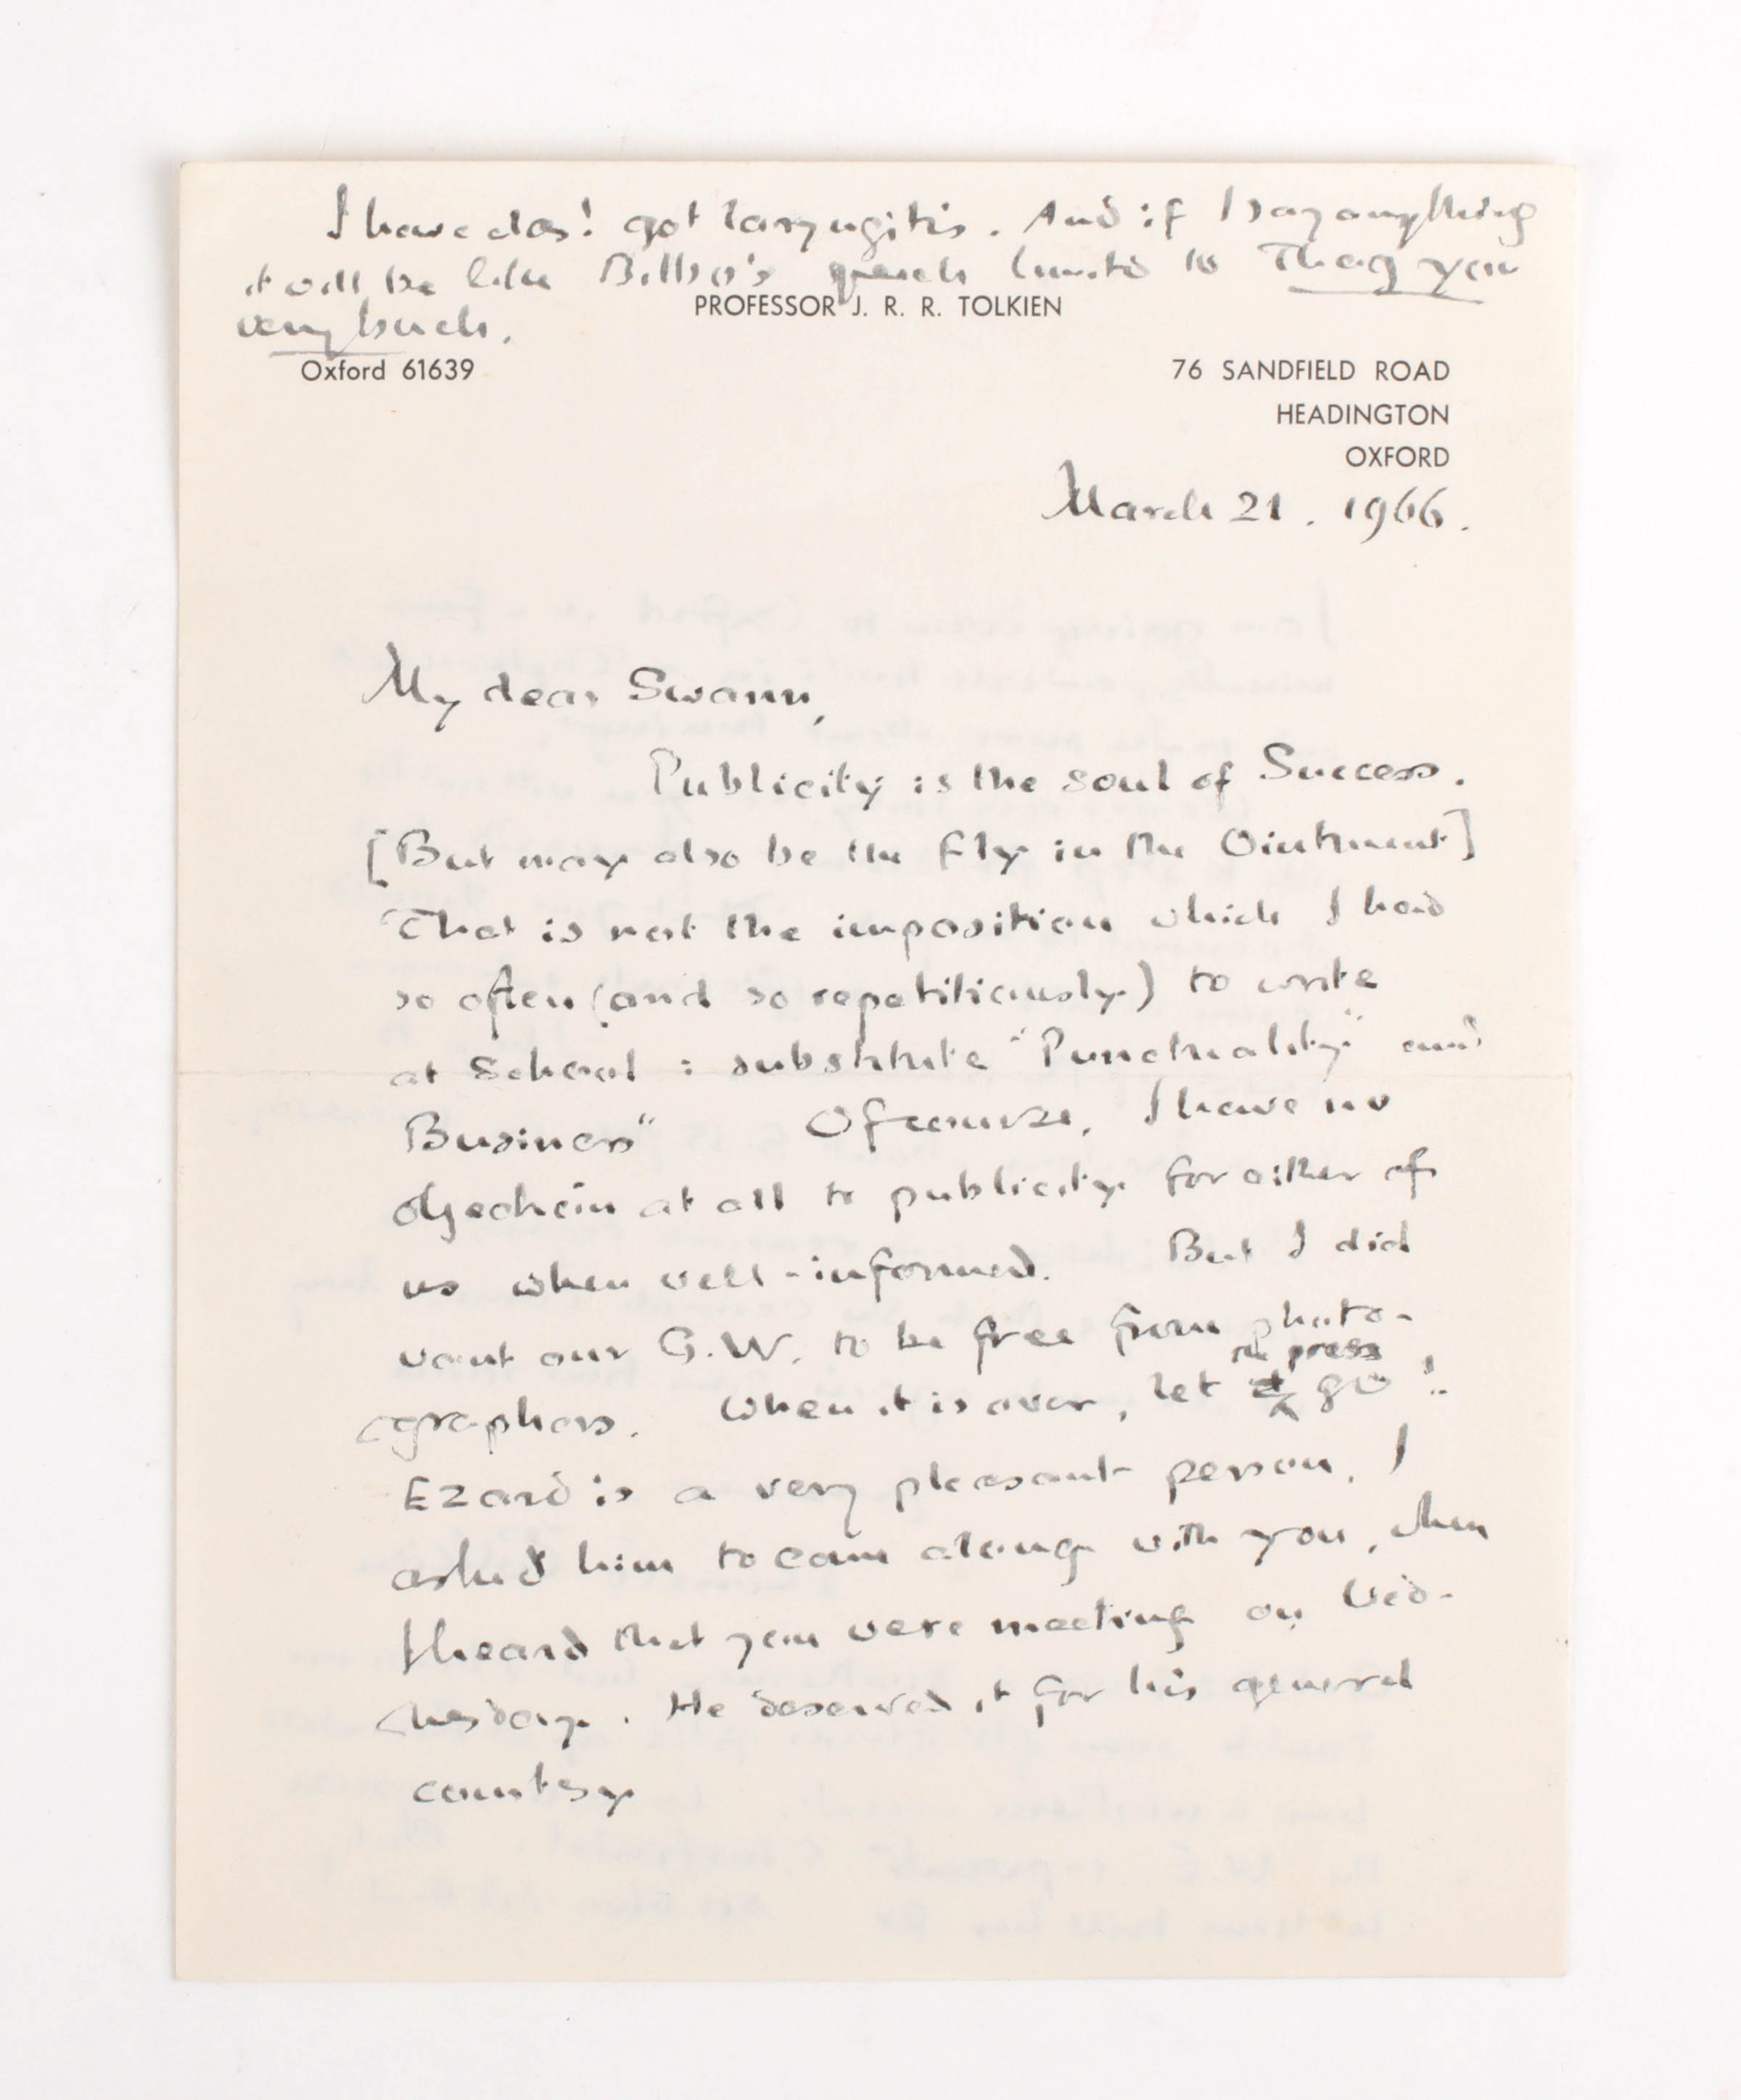 I have alas! got laryngitis. And if I say anything
it will be like Bilbo's speech limited to Thag you
very buch.
PROFESSOR J. R. R. TOLKIEN
Oxford 61639
76 SANDFIELD ROAD
HEADINGTON
OXFORD
March 21. 1966.
My dear Swann,
Publicity is the soul of Success.
[But may also be the Fly in the Ointment]
That is not the imposition which I had
so often (and so repetitiously) to write
at School : substitute "Punctuality" and
Business" Of course, I have no
objection at all to publicity for either of
us when well-informed. But I did
want our G.W. to be free from photo-
graphers. When it is over, let the press go!
Ezard is a very pleasant person. I
asked him to come along with you, when
I heard that you were meeting on Wed-
nesday. He deserved it for his general
courtesy